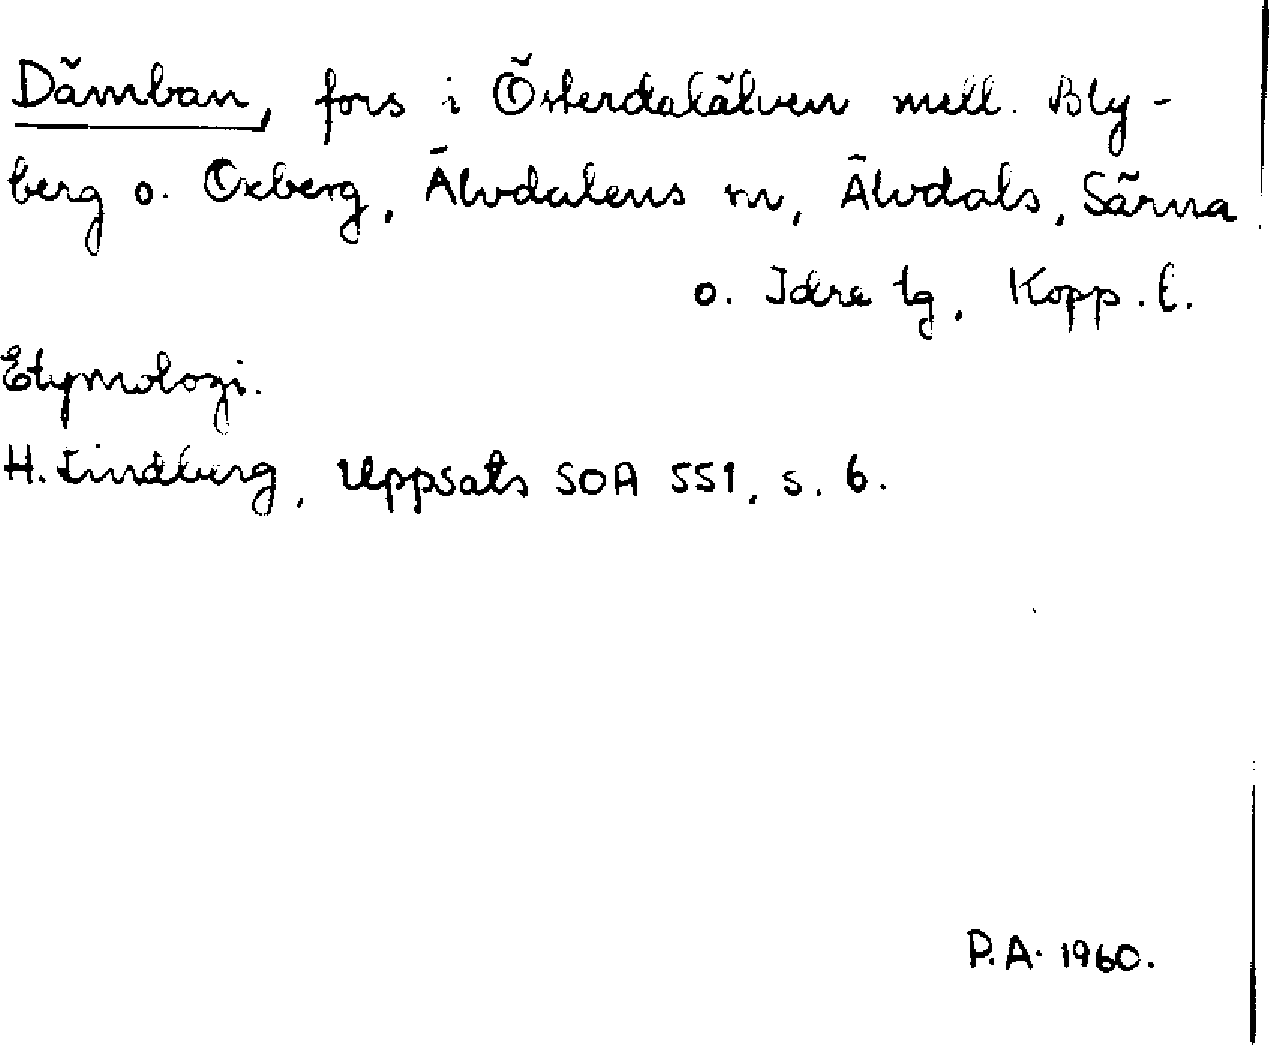 Dämban, fors i Österdalälven mell. Bly-
berg o. Oxberg, Älvdalens sn, Älvdals, Särna
o. Idre tg, Kopp. l.
Etymologi.
H. Lindberg, Uppsats SOA 551, s. 6.
P.A. 1960.